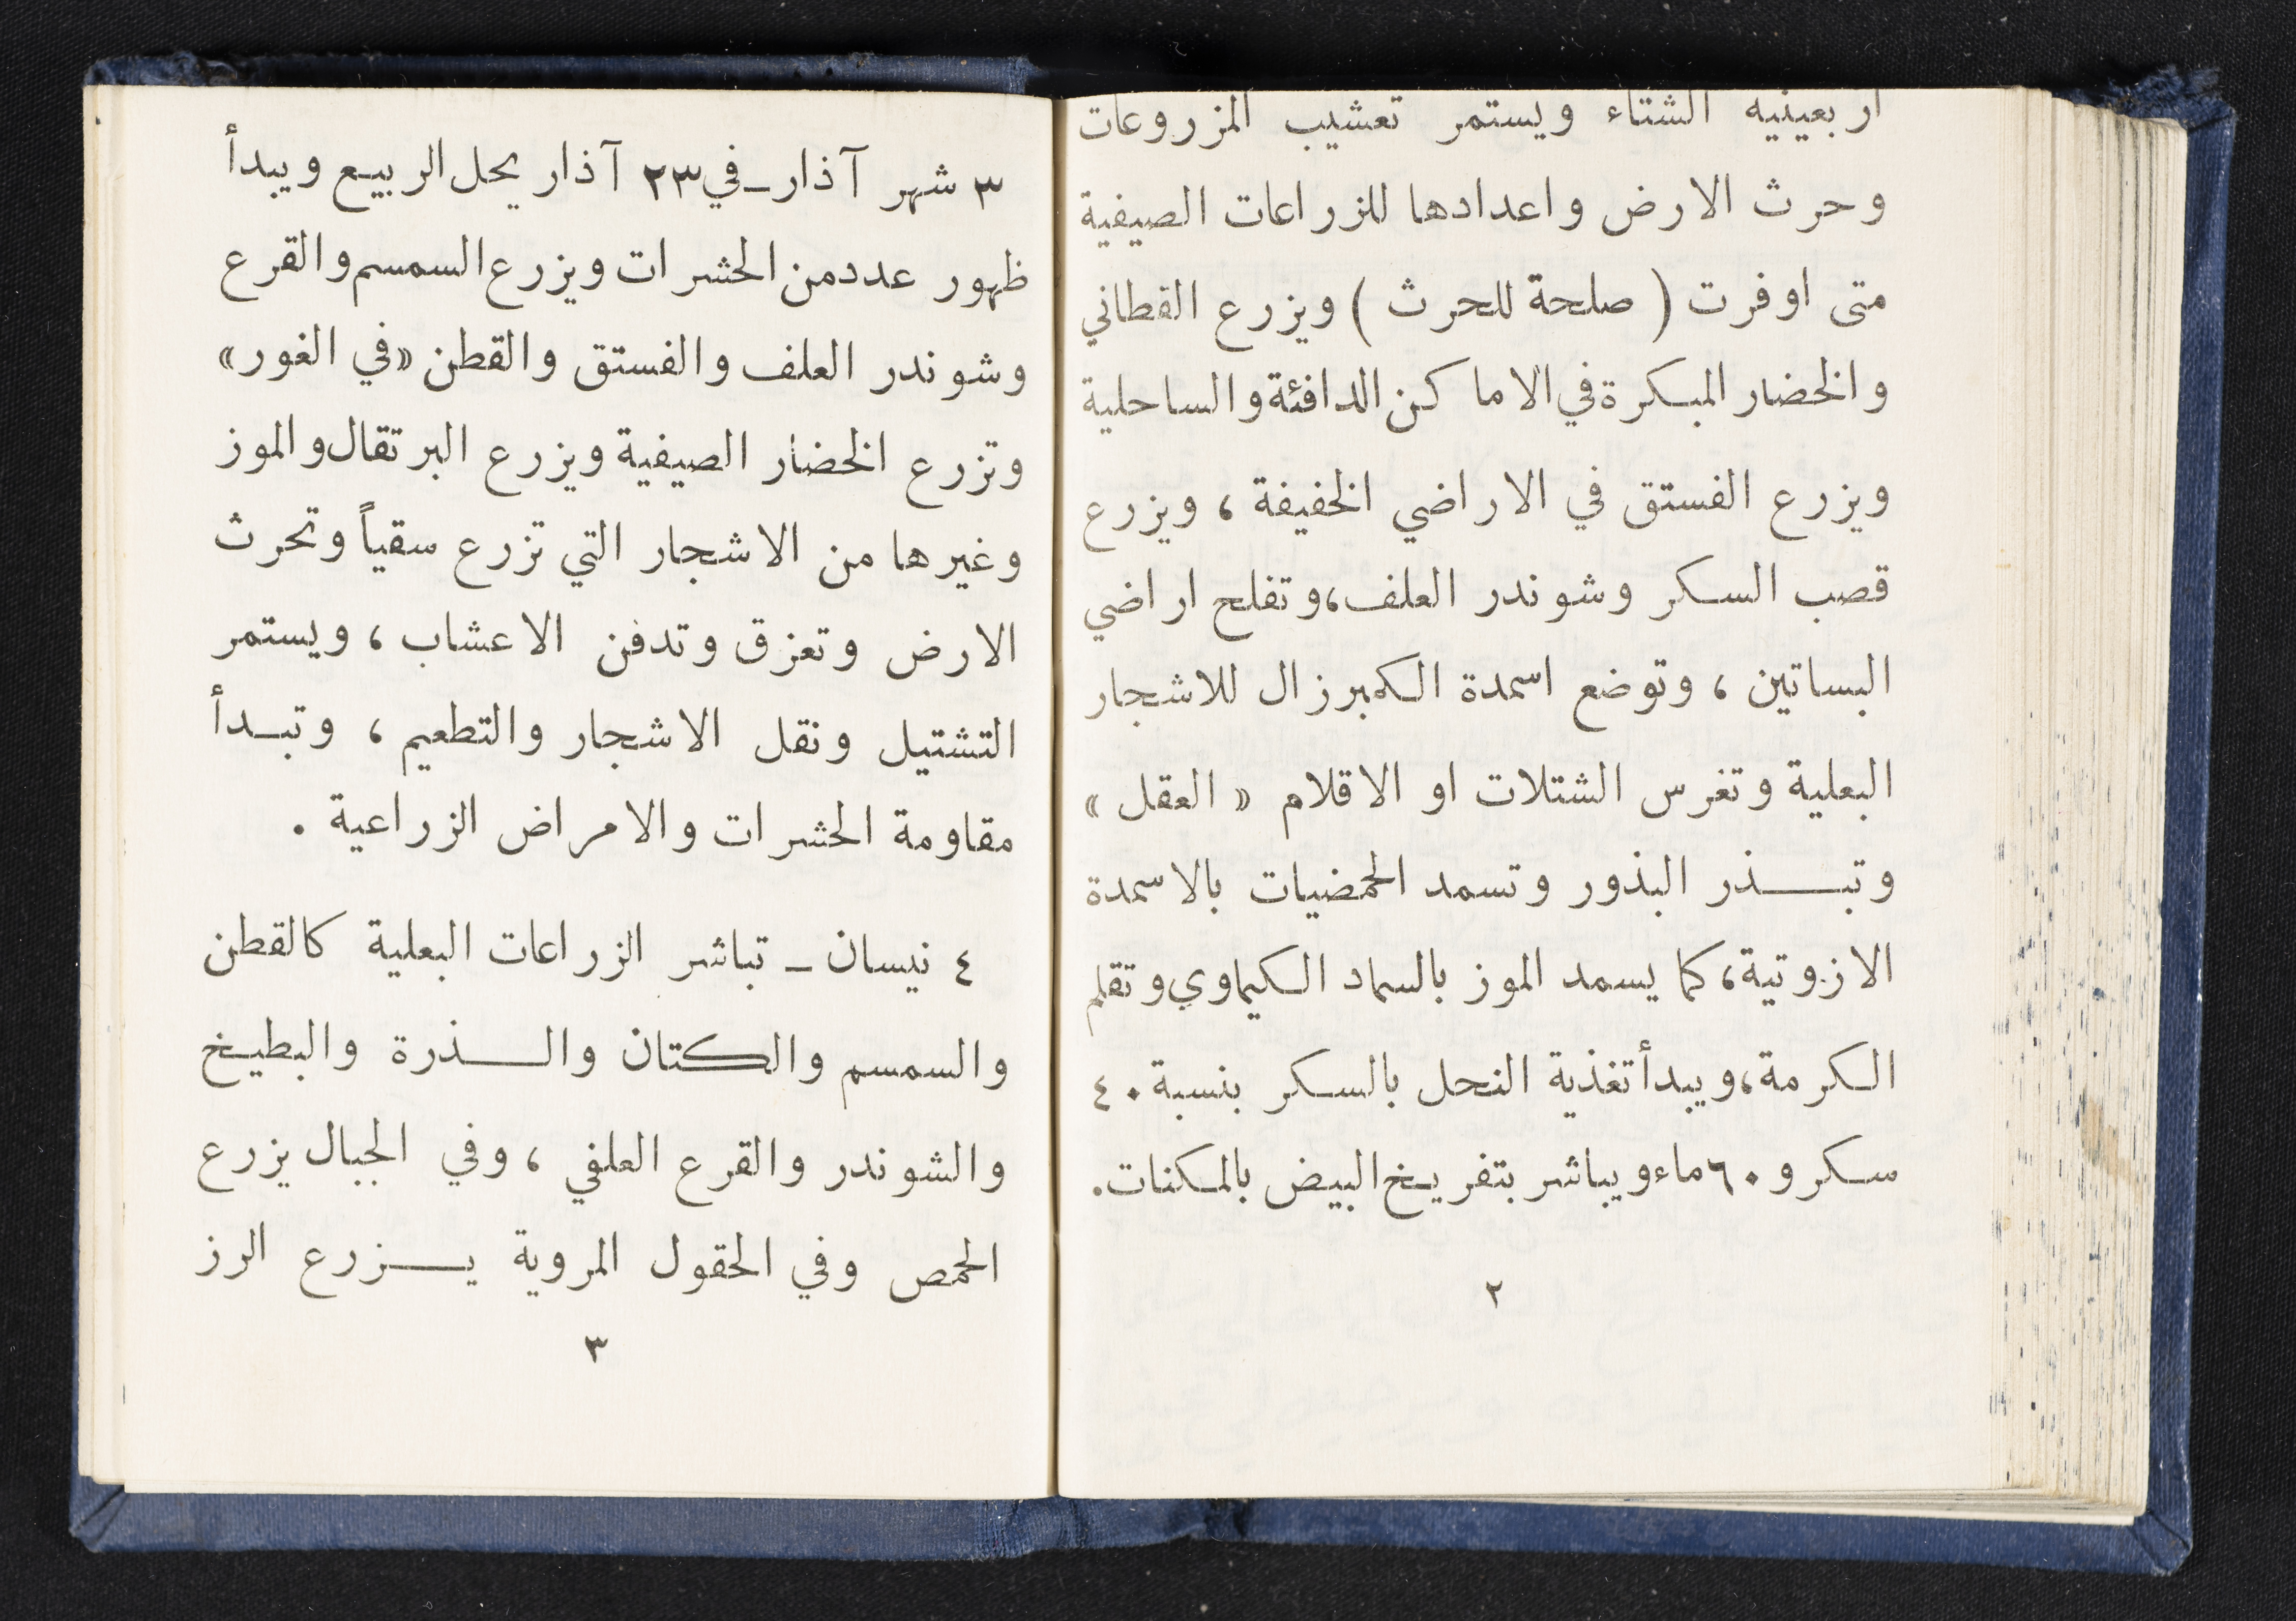 اربعينية الشتاء ويستمر تعشيب المزروعات
وحرث الارض واعدادها للزراعات الصيفية
متى اوفرت ( صلحة للحرث ) ويزرع القطاني
والخضار المبكرة في الاماكن الدافئة والساحلية
ويزرع الفستق في الاراضي الخفيفة ، ويزرع
قصب السكر وشوندر العلف، وتفلح اراضي
البساتين ، وتوضع اسمدة الكمبرزال للاشجار
البعلية وتغرس الشتلات او الاقلام « العقل »
وتبـــذر البذور وتسمد الحمضيات بالاسمدة
الازوتية، كما يسمد الموز بالسماد الكيماوي وتقلم
الكرمة، ويبدأ تغذية النحل بالسكر بنسبة ٤٠
سكر و ٦٠ ماء ويباشر بتفريخ البيض بالمكنات.
٢
٣ شهر آذار ـ في ٢٣ آذار يحل الربيع ويبدأ
ظهور عدد من الحشرات ويزرع السمسم والقرع
وشوندر العلف والفستق والقطن «في الغور»
وتزرع الخضار الصيفية ويزرع البرتقال والموز
وغيرها من الاشجار التي تزرع سقياً وتحرث
الارض وتعزق وتدفن الاعشاب ، ويستمر
التشتيل ونقل الاشجار والتطعيم ، وتبـدأ
مقاومة الحشرات والامراض الزراعية .
٤ نيسان ـ تباشر الزراعات البعلية كالقطن
والسمسم والكتان والـــذرة والبطيخ
والشوندر والقرع العلفي ، وفي الجبال يزرع
الحمص وفي الحقول المروية يـــزرع الرز
٣